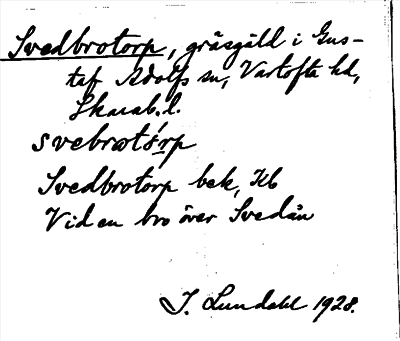 Svedbrotorp, gräsgäld i Gus-
taf Adolfs sn, Vartofta hd,
Skarab. l.
svebrotǻrp
Svedbrotorp bek, Kb
Vid en bro över Svedån
J. Lundahl 1928.